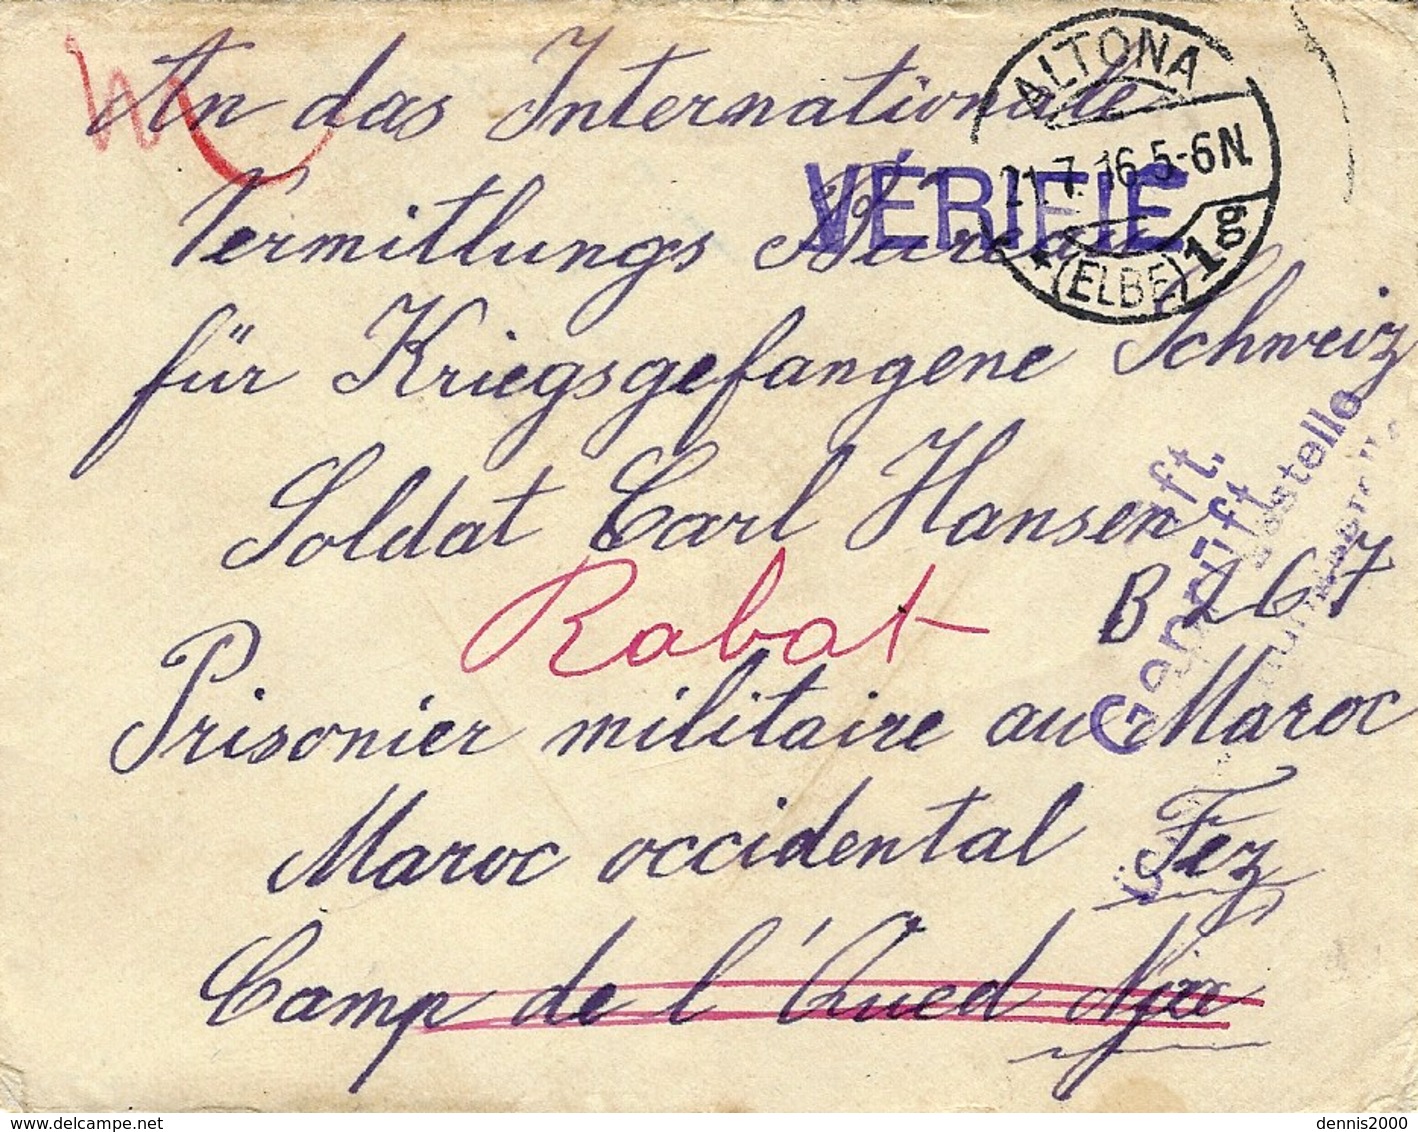 An das Internationale
Vermittlungs Bureau
für Kriegsgefangene Schweiz
Soldat Carl Hansen
B 267
Rabat
Prisonier militaire au Maroc
Maroc occidental Fez
Camp de l'Oued Nja
ALTONA
21.7.16.5-6N.
*(ELBE)1g
VÉRIFIÉ
Geprüft.
dennis2000